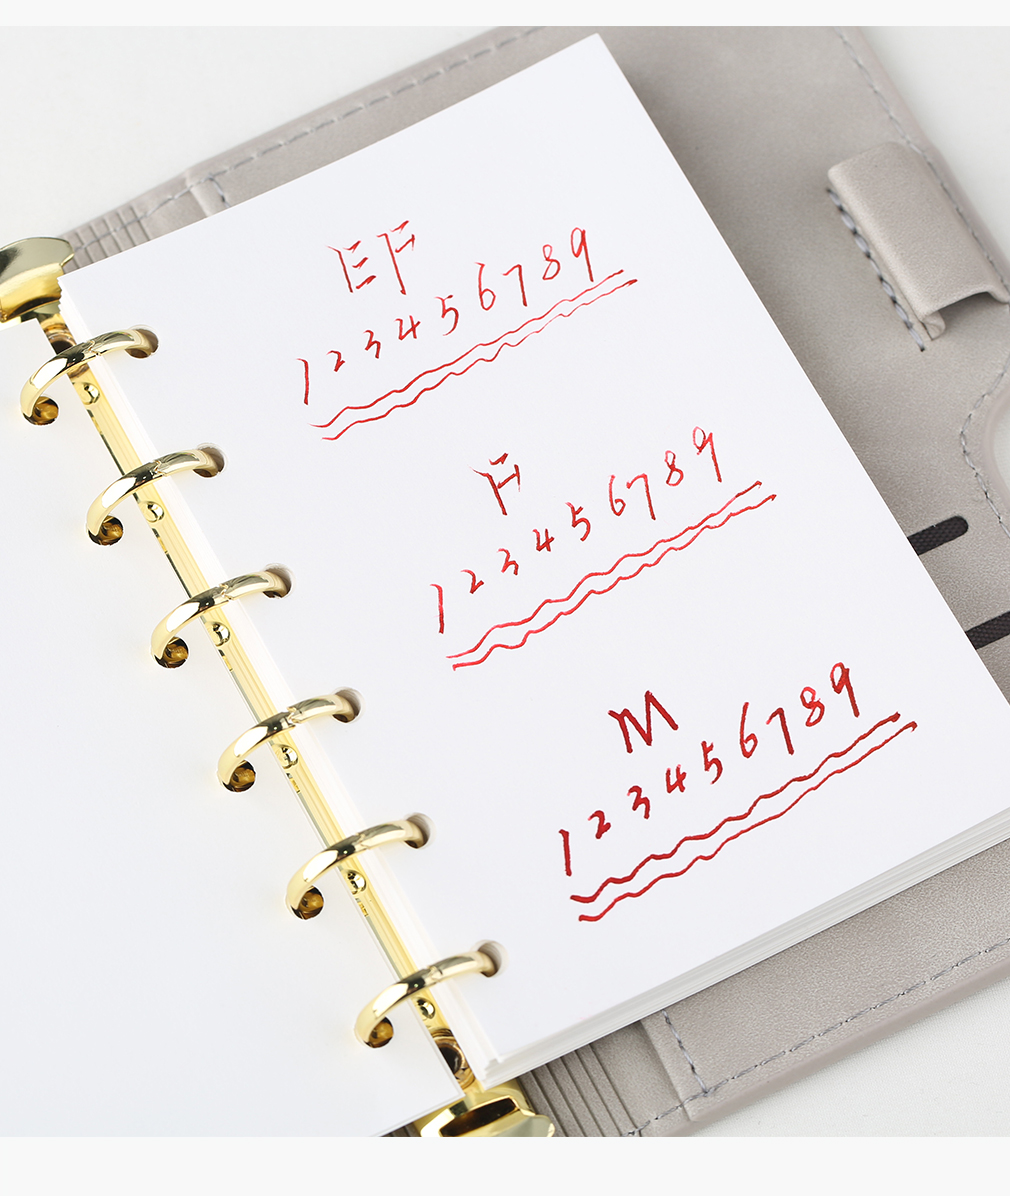 EF
123456789
F
123456789
M
123456789